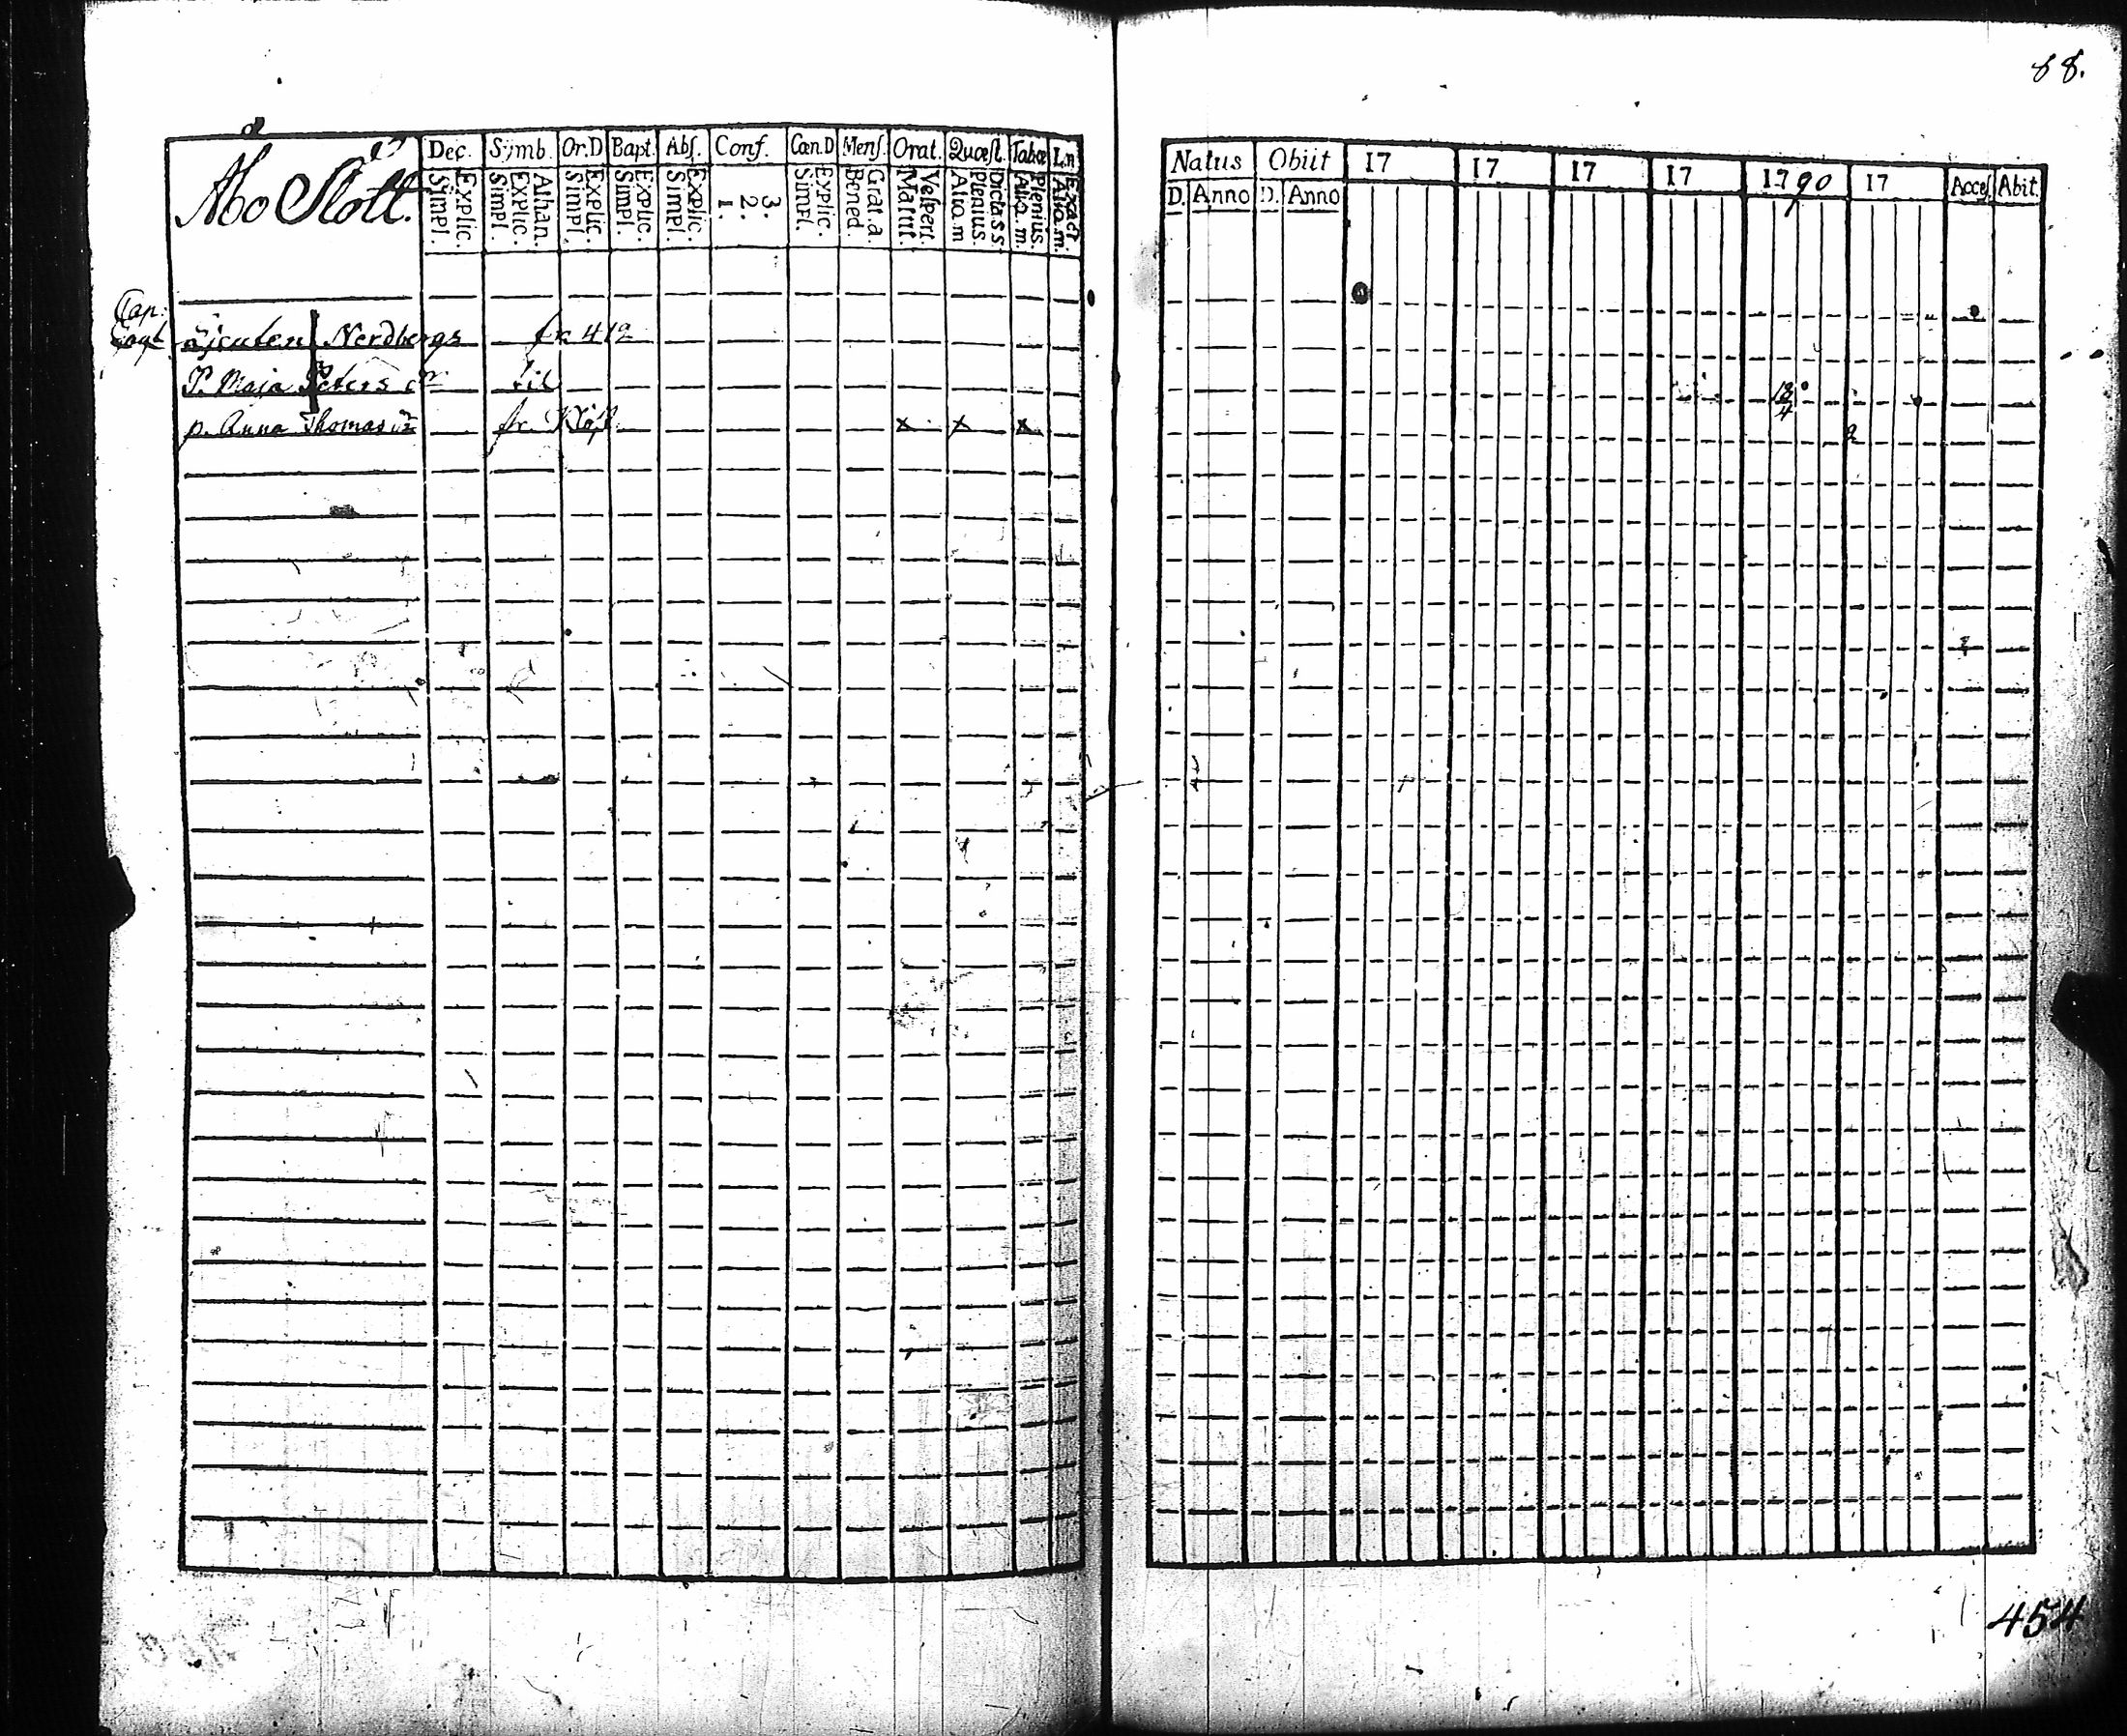 88.
Åbo Slott.
Dec. Symb. Or.D Bapt. Abſ. Conf. Cœn.D Menſ. Orat. Quæſt. Tabœ L.n
Simpl. Explic. Simpl. Explic. Athan. Simpl. Explic. Simpl. Explic. Simpl. Explic. 1. 2. 3. Simpl. Explic. Bened. Grat.a. Matut. Veſpert. Aliq.m Plenius. Dicta.s.s. Aliq.m. Plenius. Aliq.m. Exact.
Natus Obiit 17 17 17 17 1790 17 Acceſ. Abit.
D. Anno D. Anno
Cap:
Nordbergs fr 412
P. Maja Peters dr til 18/4
p. Anna Thomas dr fr x x x
454